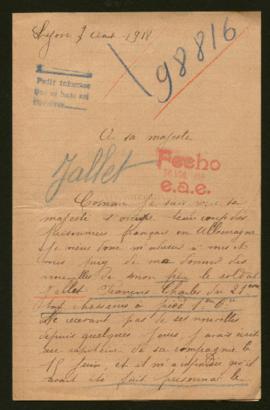 Lyon 7 Aout 1918
98816
Petit
A sa majesté
Jallet
Fecho
e.a.e.
Comme je sais que sa
majesté s'occupe beaucoup des
prisonniers français en Allemagne
je viens donc m'adresser à vous et
vous prier de me donner des
nouvelles de mon le soldat
Jallet François Charles du 21eme
Bat chasseurs à pied 1ere Cie
ne recevant pas de ses nouvelles
depuis quelques jours j'avais écrit
au capitaine de sa compagnie le
15 Juin et il m'a répondu qu'il
avait été fait prisonnier le